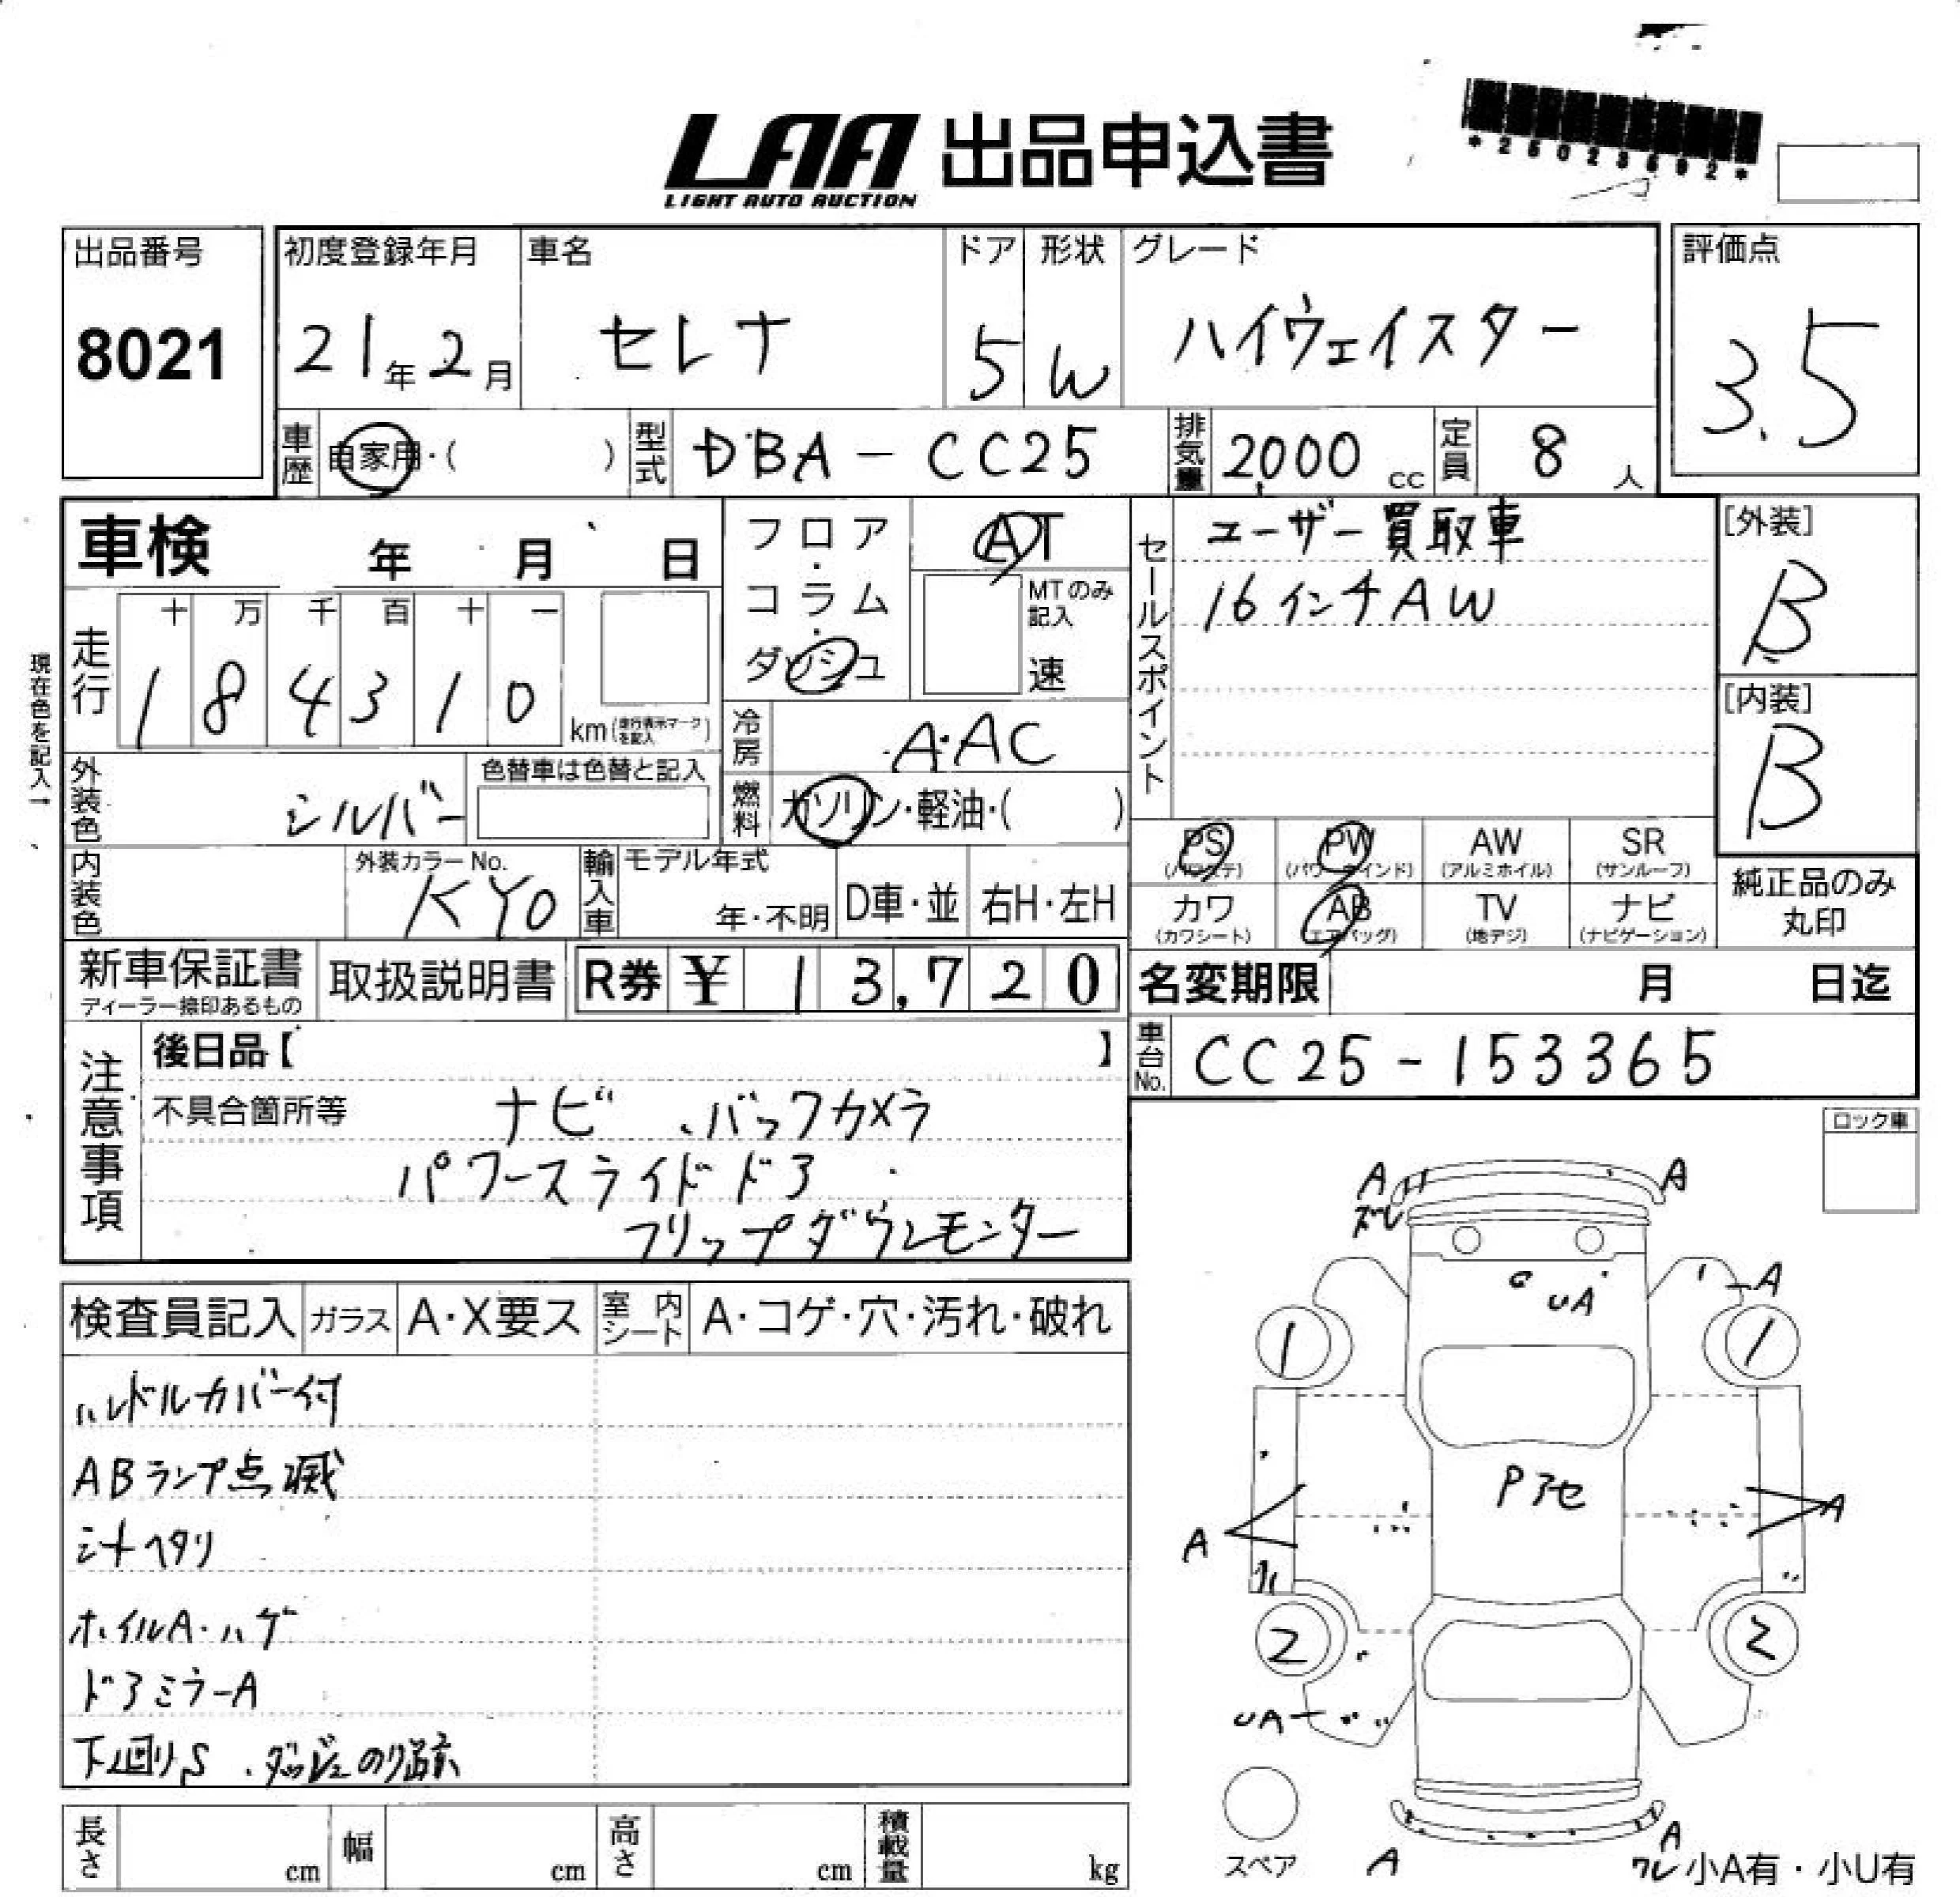 LAA 出品申込書
LIGHT AUTO AUCTION
*25023692*
出品番号
8021
初度登録年月
21年2月
車名
セレナ
ドア
5
形状
W
グレード
ハイウェイスター
評価点
3.5
車歴 自家用・( )
型式 DBA-CC25
排気量 2000 cc
定員 8人
車検 年 月 日
フロア・コラム・ダッシュ
AT
MTのみ記入
速
セールスポイント
ユーザー買取車
16インチAW
[外装]
B
[内装]
B
現在色を記入→
走行
十 万 千 百 十 一
1 8 4 3 1 0
km(走行表示マークを記入)
冷房 A・AC
外装色 シルバー
色替車は色替と記入
燃料 ガソリン・軽油・( )
PS
(パワステ)
PW
(パワーウインド)
AW
(アルミホイル)
SR
(サンルーフ)
内装色
外装カラーNo.
KY0
輸入車
モデル年式
年・不明
D車・並
右H・左H
カワ
(カワシート)
AB
(エアバッグ)
TV
(地デジ)
ナビ
(ナビゲーション)
純正品のみ
丸印
新車保証書
ディーラー捺印あるもの
取扱説明書
R券 ¥ 13,720
名変期限 月 日迄
車台No. CC25-153365
注意事項
後日品【 】
不具合箇所等
ナビ、バックカメラ
パワースライドドア
フリップダウンモニター
ロック車
検査員記入
ガラス A・X要ス
室内シート A・コゲ・穴・汚れ・破れ
ハンドルカバー付
ABランプ点滅
シートヘタリ
ホイルA・ハゲ
ドアミラーA
下回りS、ダッシュのり跡
A
ズレ
A
UA
A
1
1
Pアセ
A
A
2
2
UA
スペア
A
A
ワレ
小A有・小U有
長さ cm
幅 cm
高さ cm
積載量 kg